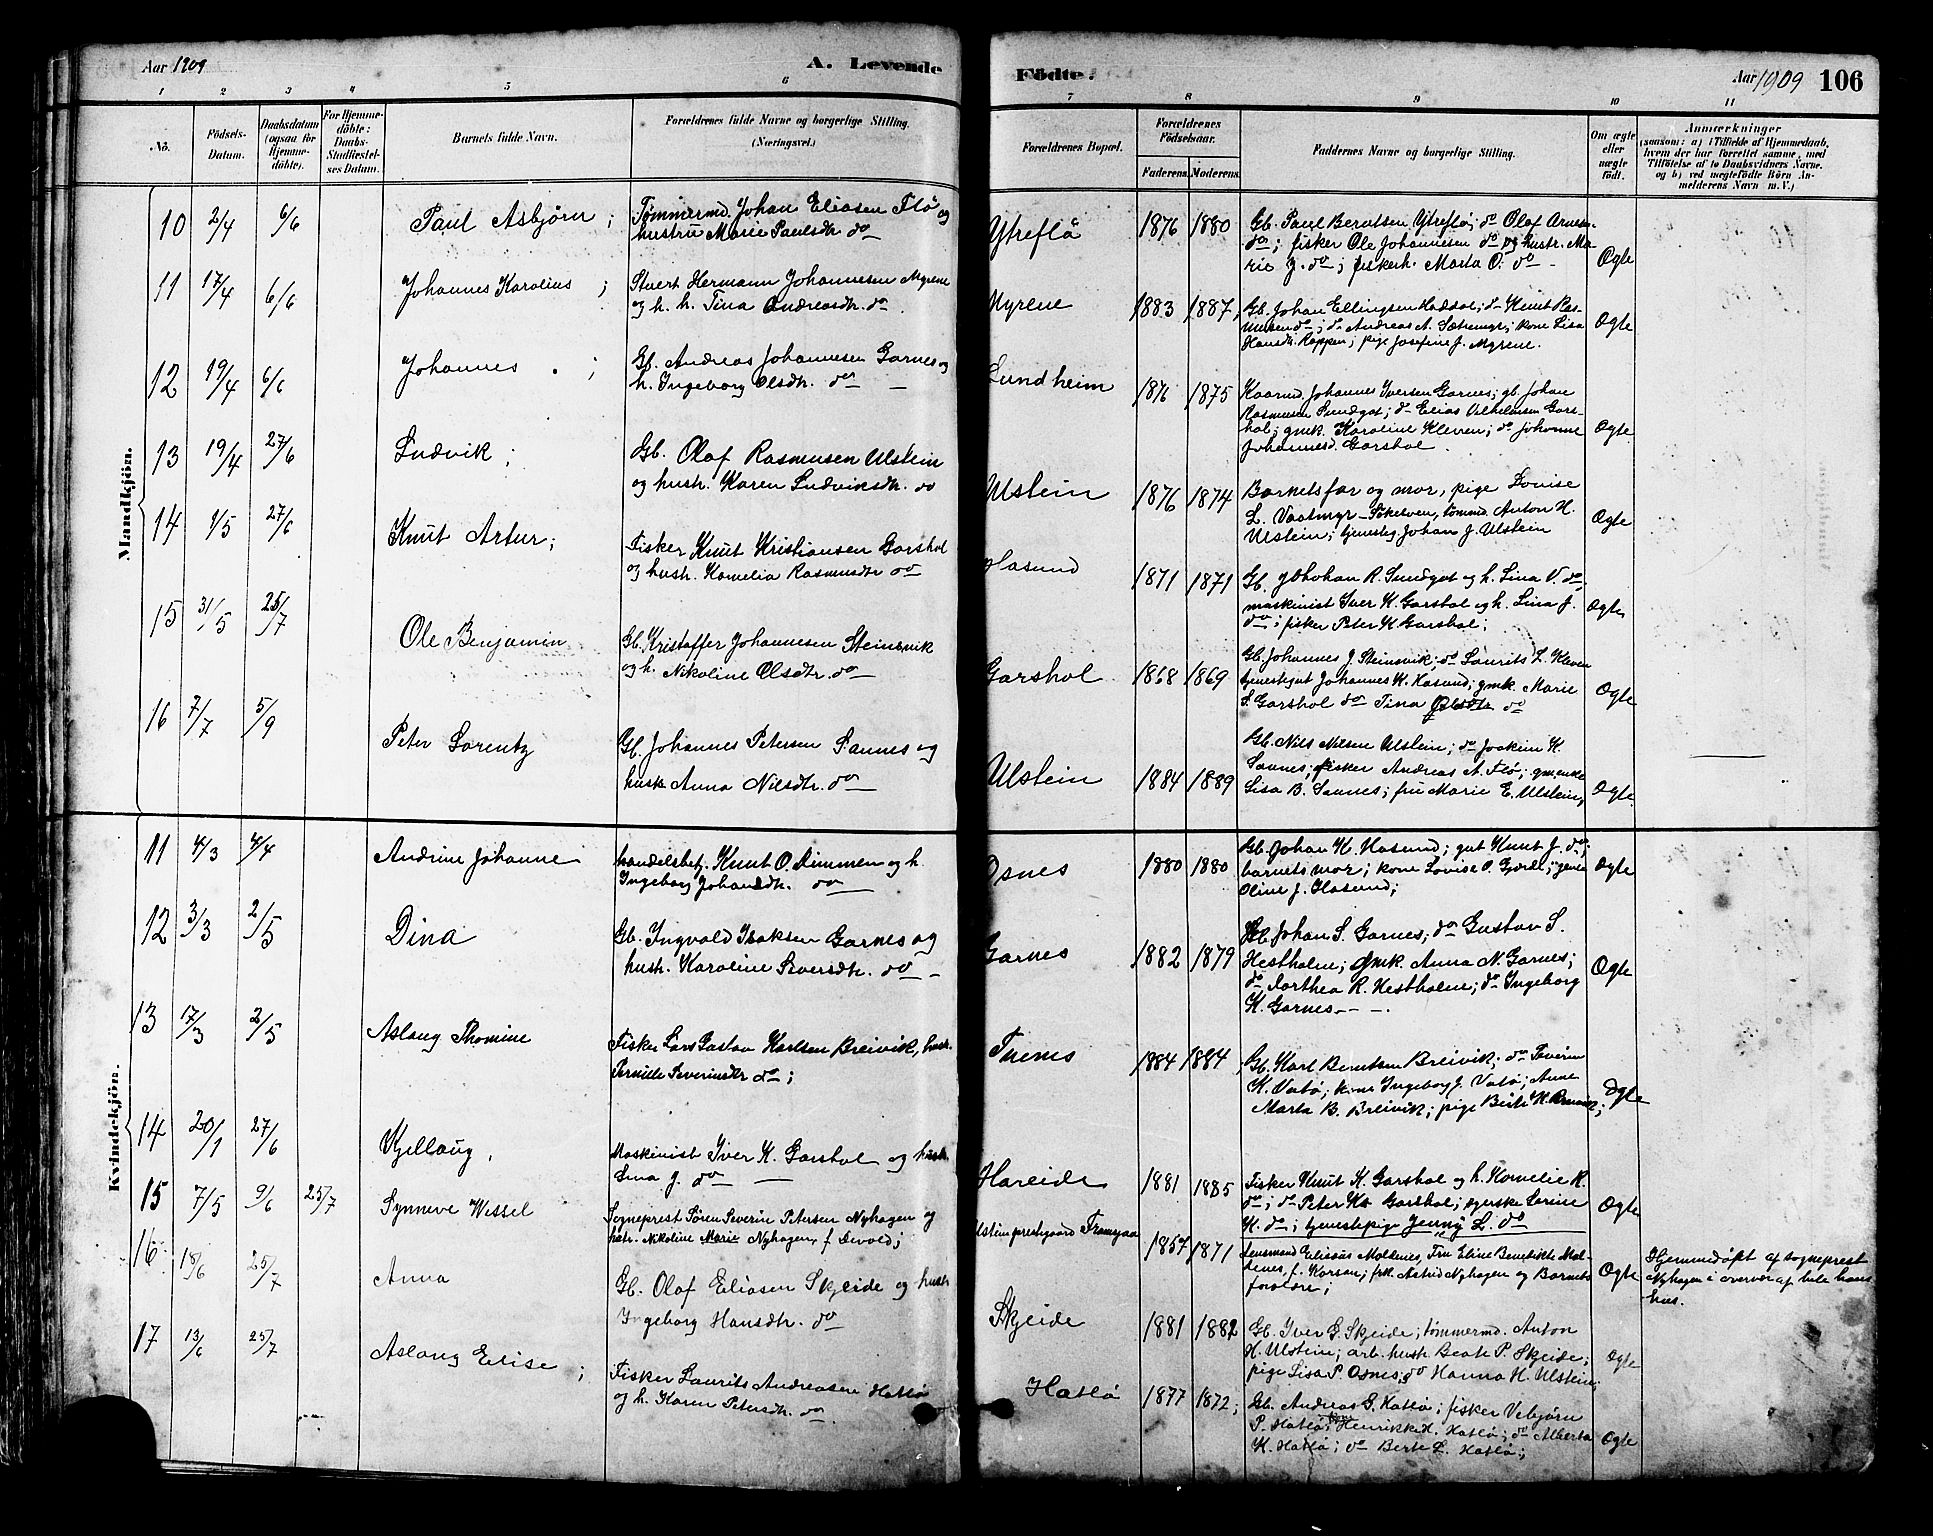 Aar 1909
A. Levende
Födte.
Aar 1909 106
1 2 3 4 5 6 7 8 9 10 11
No.
Födsels-
Datum.
Daabsdatum
(ogsaa for
Hjemme-
döbte).
For Hjemme-
döbte:
Daabs-
Stadfæstel-
ses Datum.
Barnets fulde Navn.
Forældrenes fulde Navne og borgerlige Stilling.
(Næringsvei.)
Forældrenes Bopæl.
Forældrenes
Födselsaar.
Faderens. Moderens.
Faddernes Navne og borgerlige Stilling.
Om ægte
eller
uægte
födt.
Anmærkninger
(saasom: a) i Tilfælde af Hjemmedaab,
hvem der har forrettet samme, med
Tilföielse af to Daabsvidners Navne,
og b) ved uægtefödte Börn An-
melderens Navn m. V.)
Mandkjön.
10 2/4 6/6 Paul Asbjörn; Tømmermd. Johan Eliasen Flø og
hustru Marie Paulsdtr. do
Ytreflø 1876 1880 Gb. Paul Berntsen Ytreflø; do Olaf Arnesen
do; fisker Ole Johannesen do og hustr. Ma-
rie J. do; fiskerh. Marta O. do
Ægte
11 17/4 6/6 Johannes Karolius; Stuert Hermann Johannesen Myrene
og h. h. Tina Andreasdtr. do
Myrene 1883 1887 Gb. Johan Ellingsen Haddal; do Knut Ras-
mussen do; do Andreas A. Sætremyr; kone Lisa
Hansdtr. Røppen; pige Josefine J. Myrene.
Ægte
12 19/4 6/6 Johannes; Gb. Andreas Johannesen Garnes og
h. Ingeborg Olsdtr. do
Sundheim 1876 1875 Kaarmd. Johannes Iversen Garnes; gb. Johan
Rasmussen Sundgot; do Elias Vilhelmsen Gars-
hol; gmk. Karoline Kleven; do Johanne
Johannesd. Garshol.
Ægte
13 19/4 27/6 Ludvik; Gb. Olaf Rasmusen Ulstein
og hustr. Karen Ludviksdtr. do
Ulstein 1876 1874 Barnets far og mor, pige Lovise
L. Vaatmyr - Sökelven, tömmd. Anton H.
Ulstein; tjenesteg. Johan J. Ulstein
Ægte
14 1/5 27/6 Knut Artur; Fisker Knut Kristiansen Garshol
og hustr. Kornelia Rasmusdtr do
Hasund 1871 1871 Gb. Johan R. Sundgot og h. Lina V. do;
maskinist Iver K. Garshol og h. Lina J.
do; fisker Peter K. Garshol;
Ægte
15 31/5 25/7 Ole Benjamin Gb. Kristoffer Johannesen Steinsvik
og h. Nikoline Olsdtr. do
Garshol 1868 1869 Gb. Johannes J. Steinsvik; do Laurits L. Kleven
tjenestegut Johannes K. Hasund; gmk. Marie
S. Garshol do Tina Olsdtr do
Ægte
16 7/7 5/9 Peter Lorentz Gb. Johannes Petersen Saunes og
hustr. Anna Nilsdtr. do
Ulstein 1884 1889 Gb. Nils Nilsen Ulstein; do Joakim K.
Saunes; fisker Andreas A. Flø; gmenke
Lisa B. Saunes; fru Marie E. Ulstein,
Ægte
Kvindekjön.
11 4/3 4/4 Andrine Johanne handelsbetj. Knut O. Dimmen og h.
Ingeborg Johansdtr. do
Osnes 1880 1880 Gb. Johan K. Hasund; gut Knut J. do;
barnets mor; kone Lovise O. Gjerde; jente
Oline J. Hasund;
Ægte
12 3/3 2/5 Dina Gb. Ingvald Isaksen Garnes og
hustr. Karoline Seversdtr. do
Garnes 1882 1879 Gb. Johan S. Garnes; do Gustav S.
Hestholm; gmk. Anna N. Garnes;
do Dorthea R. Hestholm; do Ingeborg
K. Garnes
Ægte
13 17/3 2/5 Aslaug Thomine Fisker Lars Gustav Karlsen Breivik, hustr.
Pernille Severinsdtr do;
1884 1884 Gb. Karl Berntsen Breivik; do Severin
K. Vatø; kone Ingeborg J. Vatø; Anne
Marta B. Breivik; pige Berte K.
Ægte
14 20/1 27/6 Kjellaug, Maskinist Iver K. Garshol og hustr.
Lina J. do
Hareide 1881 1885 Fisker Knut K. Garshol og h. Kornelie R.
do; do Peter K. Garshol; Lovine
K. do; tjenestepige Jenny L. do
Ægte
15 7/5 9/6 25/7 Synneve Wessel Sogneprest Søren Severin Petersen Nyhagen og
hstr. Nikoline Marie Nyhagen, f. Devold;
Ulstein prestegaard 1857 1871 Lensmand Elisæus Moldenes, Fru Eline Benedikte Mol-
denes, f. Korsen; frk. Astrid Nyhagen og Barnets
forældre;
Ægte
Hjemmedøpt af sogneprest
Nyhagen i overvær af hele hans
hus.
16 18/6 25/7 Anna Gb. Olaf Eliasen Skjeide og hustr
Ingeborg Hansdtr. do
Skjeide 1881 1882 Gb. Iver G. Skjeide; tømmermd. Anton
H. Ulstein; arb. hustr. Beate P. Skjeide;
pige Lisa P. Osnes; do Hanna H. Ulstein;
Ægte
17 13/6 25/7 Aslaug Elise; Fisker Laurits Andreasen Hatlø
og h. Karen Petersdtr. do
Hatlø 1877 1872; Gb. Andreas G. Hatlø; fisker Vebjørn
P. Hatlø; Henrikke H. Hatlø; do Alberta
K. Hatlø; do Berte L. Hatlø;
Ægte